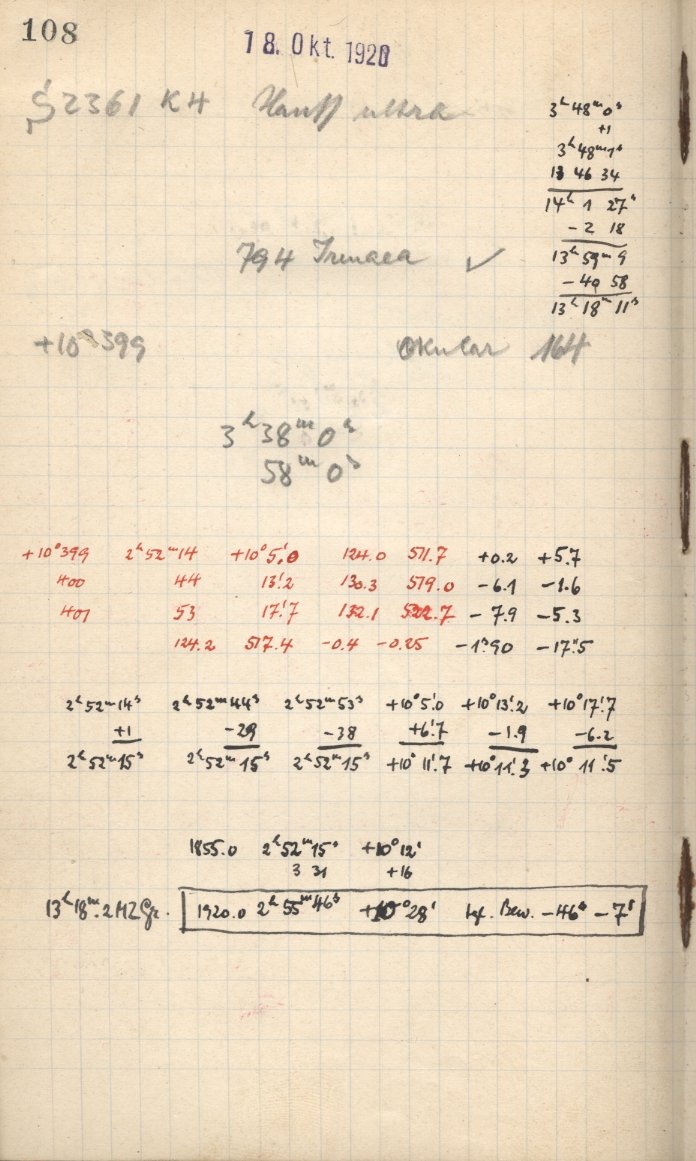 108
18. Okt. 1920
2361 K4 Hauff ultra
3ʰ48ᵐ0ˢ
+1
3ʰ48ᵐ1ˢ
13 46 34
14ʰ 1 27ˢ
-2 18
13ʰ59ᵐ9
-40 58
13ʰ18ᵐ11ˢ
794 Irenaea ✓
+10°399 Okular 164
3ʰ38ᵐ0ˢ
58ᵐ0ˢ
+10°399 2ʰ52ᵐ14 +10°5'.0 124.0 511.7 +0.2 +5.7
400 44 13'.2 130.3 519.0 -6.1 -1.6
401 53 17'.7 132.1 522.7 -7.9 -5.3
124.2 517.4 -0.4 -0.25 -1ˢ.90 -17".5
2ʰ52ᵐ14ˢ 2ʰ52ᵐ44ˢ 2ʰ52ᵐ53ˢ +10°5'.0 +10°13'.2 +10°17'.7
+1 -29 -38 +6'.7 -1.9 -6.2
2ʰ52ᵐ15ˢ 2ʰ52ᵐ15ˢ 2ʰ52ᵐ15ˢ +10°11'.7 +10°11'.3 +10°11'.5
1855.0 2ʰ52ᵐ15ˢ +10°12'
3 31 +16
13ʰ18ᵐ.2 MZGr. 1920.0 2ʰ55ᵐ46ˢ +10°28' tgl. Bew. -46ˢ -7'